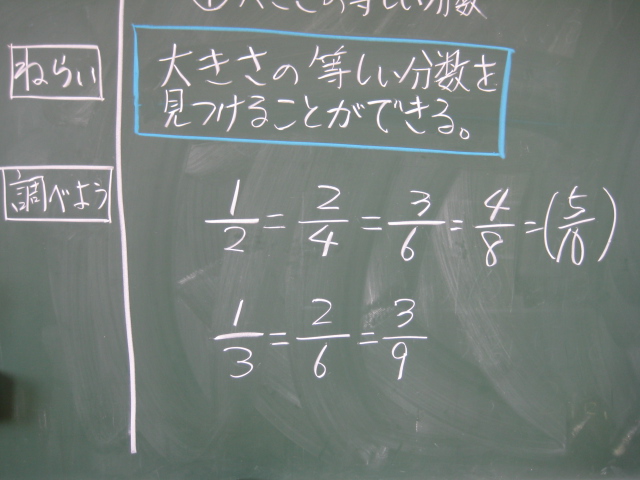 ① 大きさの等しい分数
ねらい
大きさの等しい分数を
見つけることができる。
調べよう
1/2 = 2/4 = 3/6 = 4/8 = (5/10)
1/3 = 2/6 = 3/9